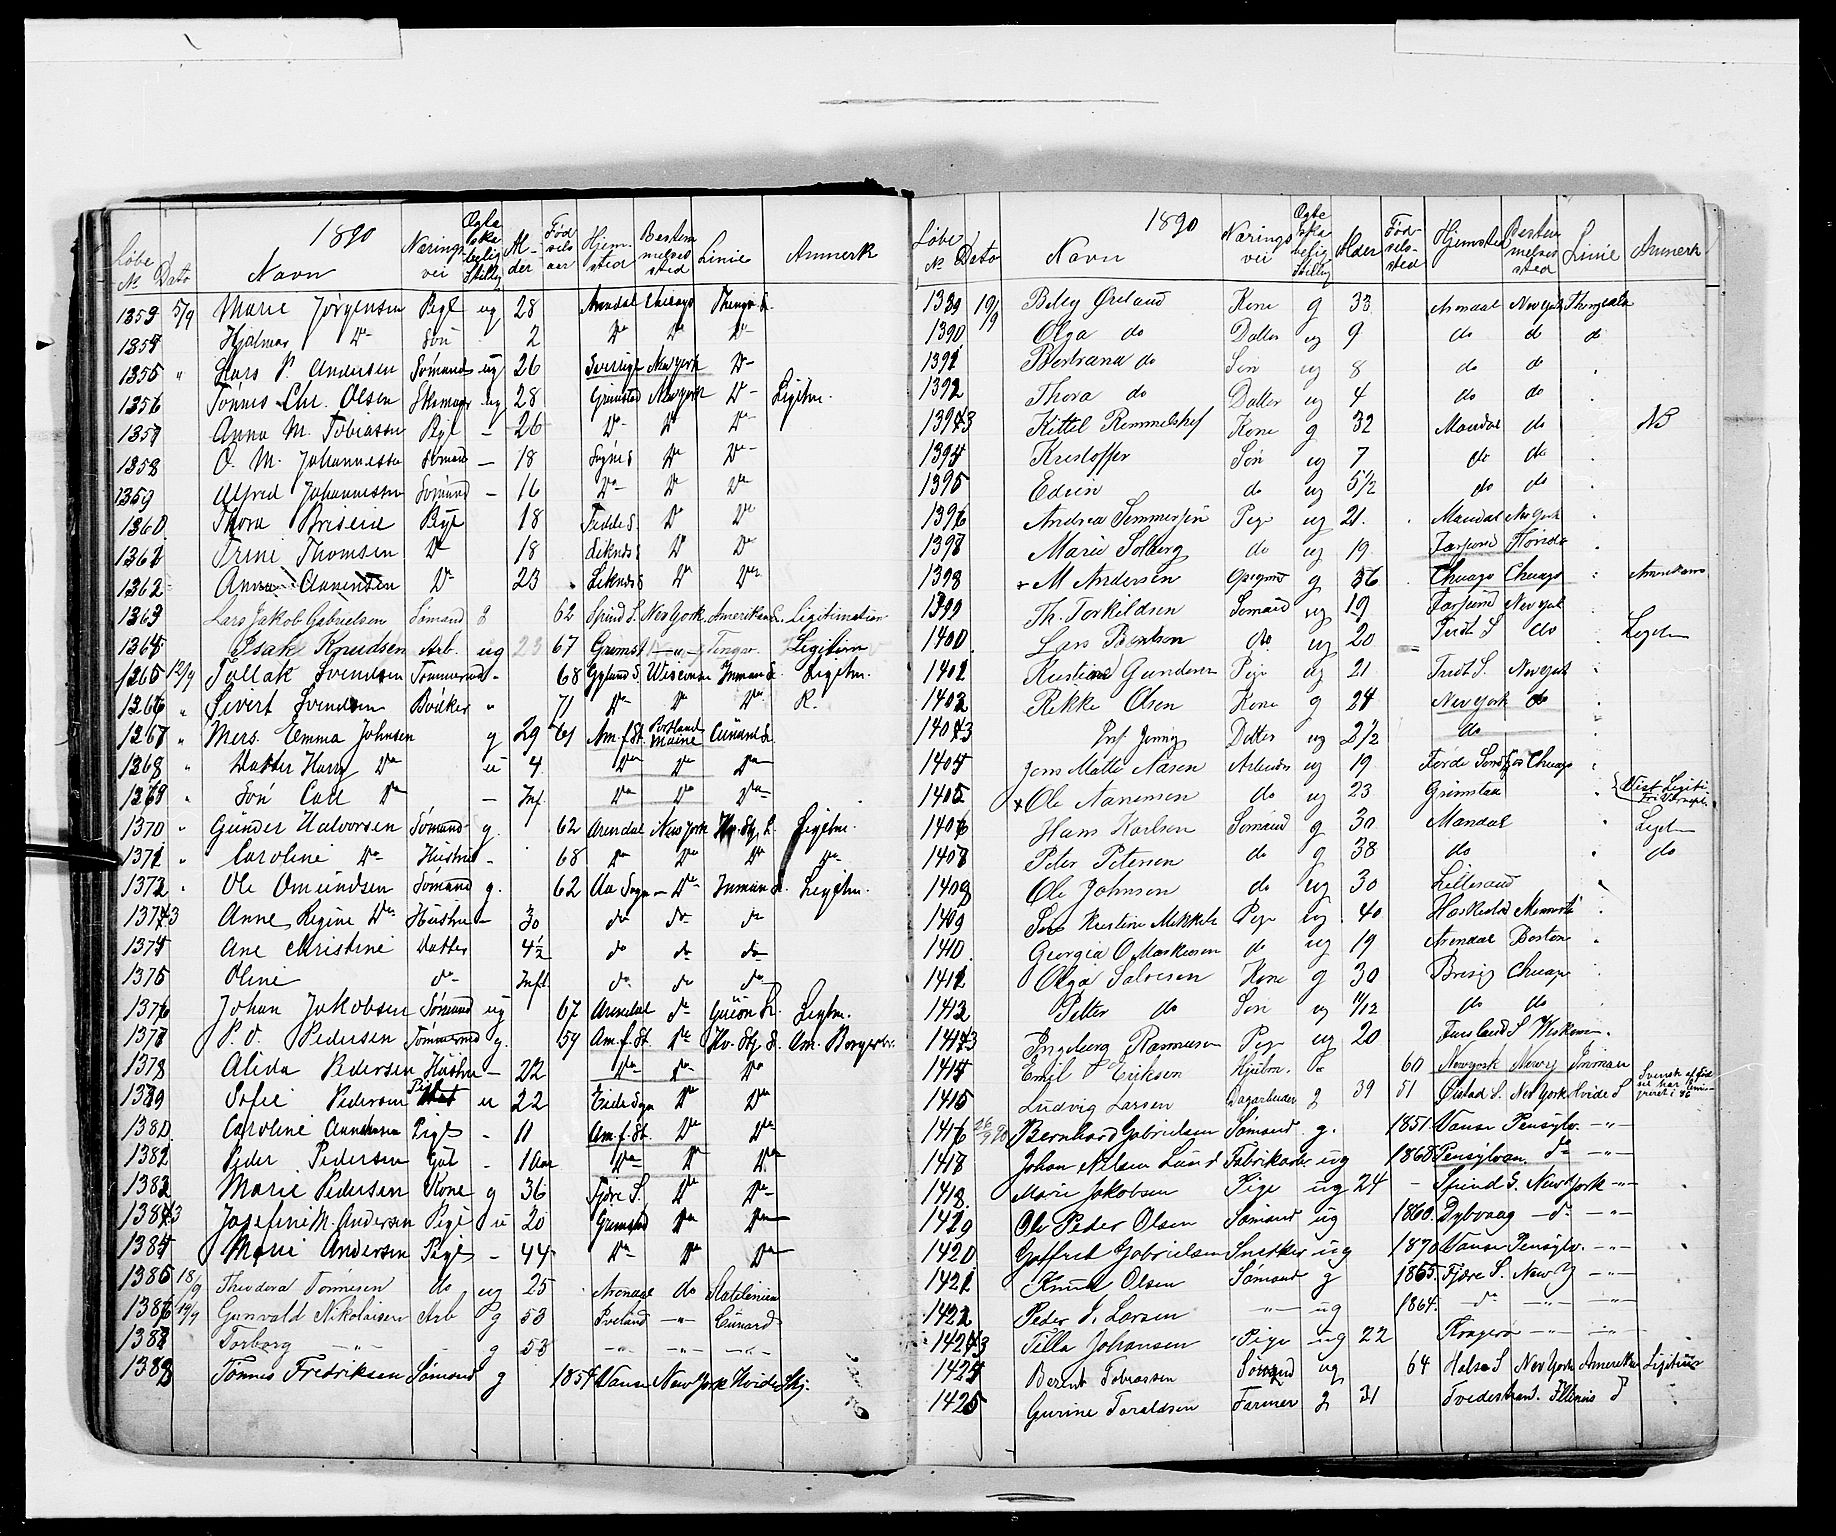 1890
Løbe No Dato Navn Nærings vei Ægte skabelig Stilling Alder Fødselsaar Hjemsted Bestemmelsessted Linie Anmerk
1353 5/9 Marie Jørgensen Pige ug 28 Arendal Chicago Thingv. L.
1354 Hjalmar Do Søn 2 Do Do Do
1355 " Lars P. Andersen Sømand ug 26 Sverrige New York Do
1356 Tønnes Chr. Olsen Skomager ug 28 Grimstad New York Do Legitm.
1357 Anna M. Tobiassen Pige - 26 Do Do Do
1358 O. M. Johannessen Sømand - 18 Søgne S Do Do
1359 Alfred Johannessen Sømand - 16 Do Do Do
1360 Thora Brisein Pige 18 Fedde S. Do Do
1361 Trine Thomsen Do 18 Liknes S Do Do
1362 Anna Annensen Do 23 Liknes S Do Do
1363 Lars Jakob Gabrielsen Sømand g 62 Spind S. New York Amerikan L. Legitimation
1364 Isak Knudsen Arb. ug 23 67 Grimst - " - Tingv. Legitim
1365 12/9 Tollak Svendsen Tømmermd - 68 Gyland S. Wisconsin Inman L. Legitm.
1366 " Sivert Svendsen Bødker " 71 Do Do Do R.
1367 " Mers. Emma Johnsen g 29 61 Am. f. St. Portland Maine Cunard L.
1368 " Datter Harry Do u 4 Do Do Do
1369 " Søn Carl Do - Inf. Do Do Do
1370 " Gunder Halvorsen Sømand g. 62 Arendal New York Hv. Stj. L. Legitm.
1371 " Caroline Do Hustru - 68 Do Do Do Do
1372 " Ole Omundsen Sømand g. 62 Aa Sogn - Do Inman L. Legitm.
1373 Anne Regine Do Hustru - 30 do do do
1374 Ane Christine Datter 4½ do do do
1375 Oline do Inft. do do do
1376 Johan Jakobsen Sømand ug 67 Arendal do Guion L. Legtm.
1377 P. O. Pedersen Tømmermd g. 59 Am. f. St. Do Hv. Stj. L. Am. Borgerbr.
1378 Alida Pedersen Hustru - 22 Do Do Do
1379 Sofie Pedersen Pige u 22 Eide Sogn Do Do
1380 Caroline Pige - 11 Am. f. St. Do Do
1381 Peder Pedersen Gut - 1 Aar Do Do Do
1382 Marie Pedersen Kone g 36 Fjære S. Do Do
1383 Josefine M. Andersen Pige u 20 Grimstad Do Do
1384 Marie Andersen Pige - 44 Do Do Do
1385 18/9 Theodora Tønnesen do ug 25 Arendal do Statslinien
1386 19/9 Gunvald Nikolaisen Arb g 53 Iveland - " - Cunard
1387 Torborg - " - g 53 - " - - " - - " -
1388 Tønnes Fredriksen Sømand g 1854 Vanse New York Hvide Stj.
1890
Løbe No Dato Navn Nærings vei Ægte skabelig Stillig Alder Fødselssted Hjemsted Bestemmelsessted Linie Anmerk
1389 19/9 Betsy Øreland Kone g 33 Arendal New York Thingvalla
1390 Olga do Datter ug 9 do do do
1391 Bertrana do Søn ug 8 do do
1392 Thora do Datter ug 4 do do
1393 Kittel Remmelshef Kone g 32 Mandal do NB
1394 Kristoffer Søn ug 7 do do
1395 Edvin do ug 5½ do do
1396 Andrea Sommersen Pige ug 21 Mandal New York
1397 Marie Solberg do ug 19 Farsund Florida
1398 M Andersen g 36 Chicago Chicago Amerikans
1399 Th. Torkildsen Sømand ug 19 Farsund New York
1400 Lars Bentsen do ug 20 Tredt S do Legitm
1401 Kristine Gundersen Pige ug 21 Tredt S. New York
1402 Rikke Olsen Kone g 24 New York do
1403 Jenny Datter ug 2½ do
1404 Jens Matte Aasen Arbeider ug 19 Førde Chicago
1405 Ole Nanensen do ug 23 Grimstad
1406 Hans Karlsen Sømand g 30 Mandal Legitm
1407 Peter Petersen do g 38 do do
1408 Ole Johnsen do ug 30 Lillesand
1409 Kristine Mikkels Pige ug 40 Hoskestad
1410 Georgia O Markussen do ug 19 Arendal Boston
1411 Olga Salvesen Kone g 30 Chicago
1412 Petter do Søn ug 11/12 do do
1413 Ingeborg Rasmussen Pige ug 20
1414 Emil Eriksen 60 New York New Y Inman
1415 Ludvig Larsen Dagarbeider g 39 51 Øiestad S. New York Hvide S
1416 26/9 90 Bernhard Gabrielsen Sømand g. 1851 Vanse Pensylv. - " -
1417 Johan Nilsen Lund Fabrikarb. ug 1868 Pensylvan. do - " -
1418 Marie Jakobsen Pige ug 24 - Spind S. New York - " -
1419 Ole Peder Olsen Sømand ug 1860 Dybvaag - do - " -
1420 Gotfred Gabrielsen Snedker ug 1870 Vanse Pensylv. - " -
1421 Knud Olsen Sømand g 1865 Fjære S. New Y - " -
1422 Peder J. Larsen - " - ug 1864 - do - - " - - " -
1423 Tilla Johansen Pige ug 22 Kragerø - " - - " -
1424 Berent Tobiassen Sømand ug 64 Halse S New York Amerikan Legitim
1425 Gurine Taraldsen Farmer g 31 Tvedestrand. Illinois